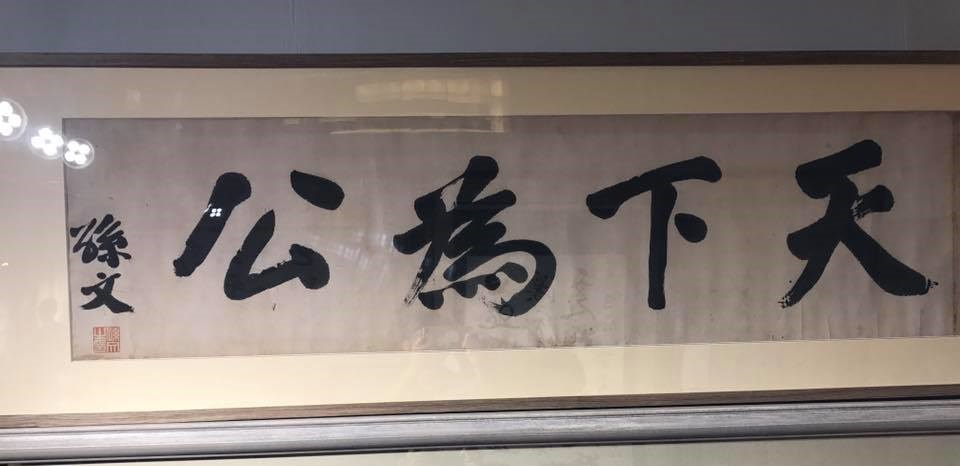 天下為公
孫文